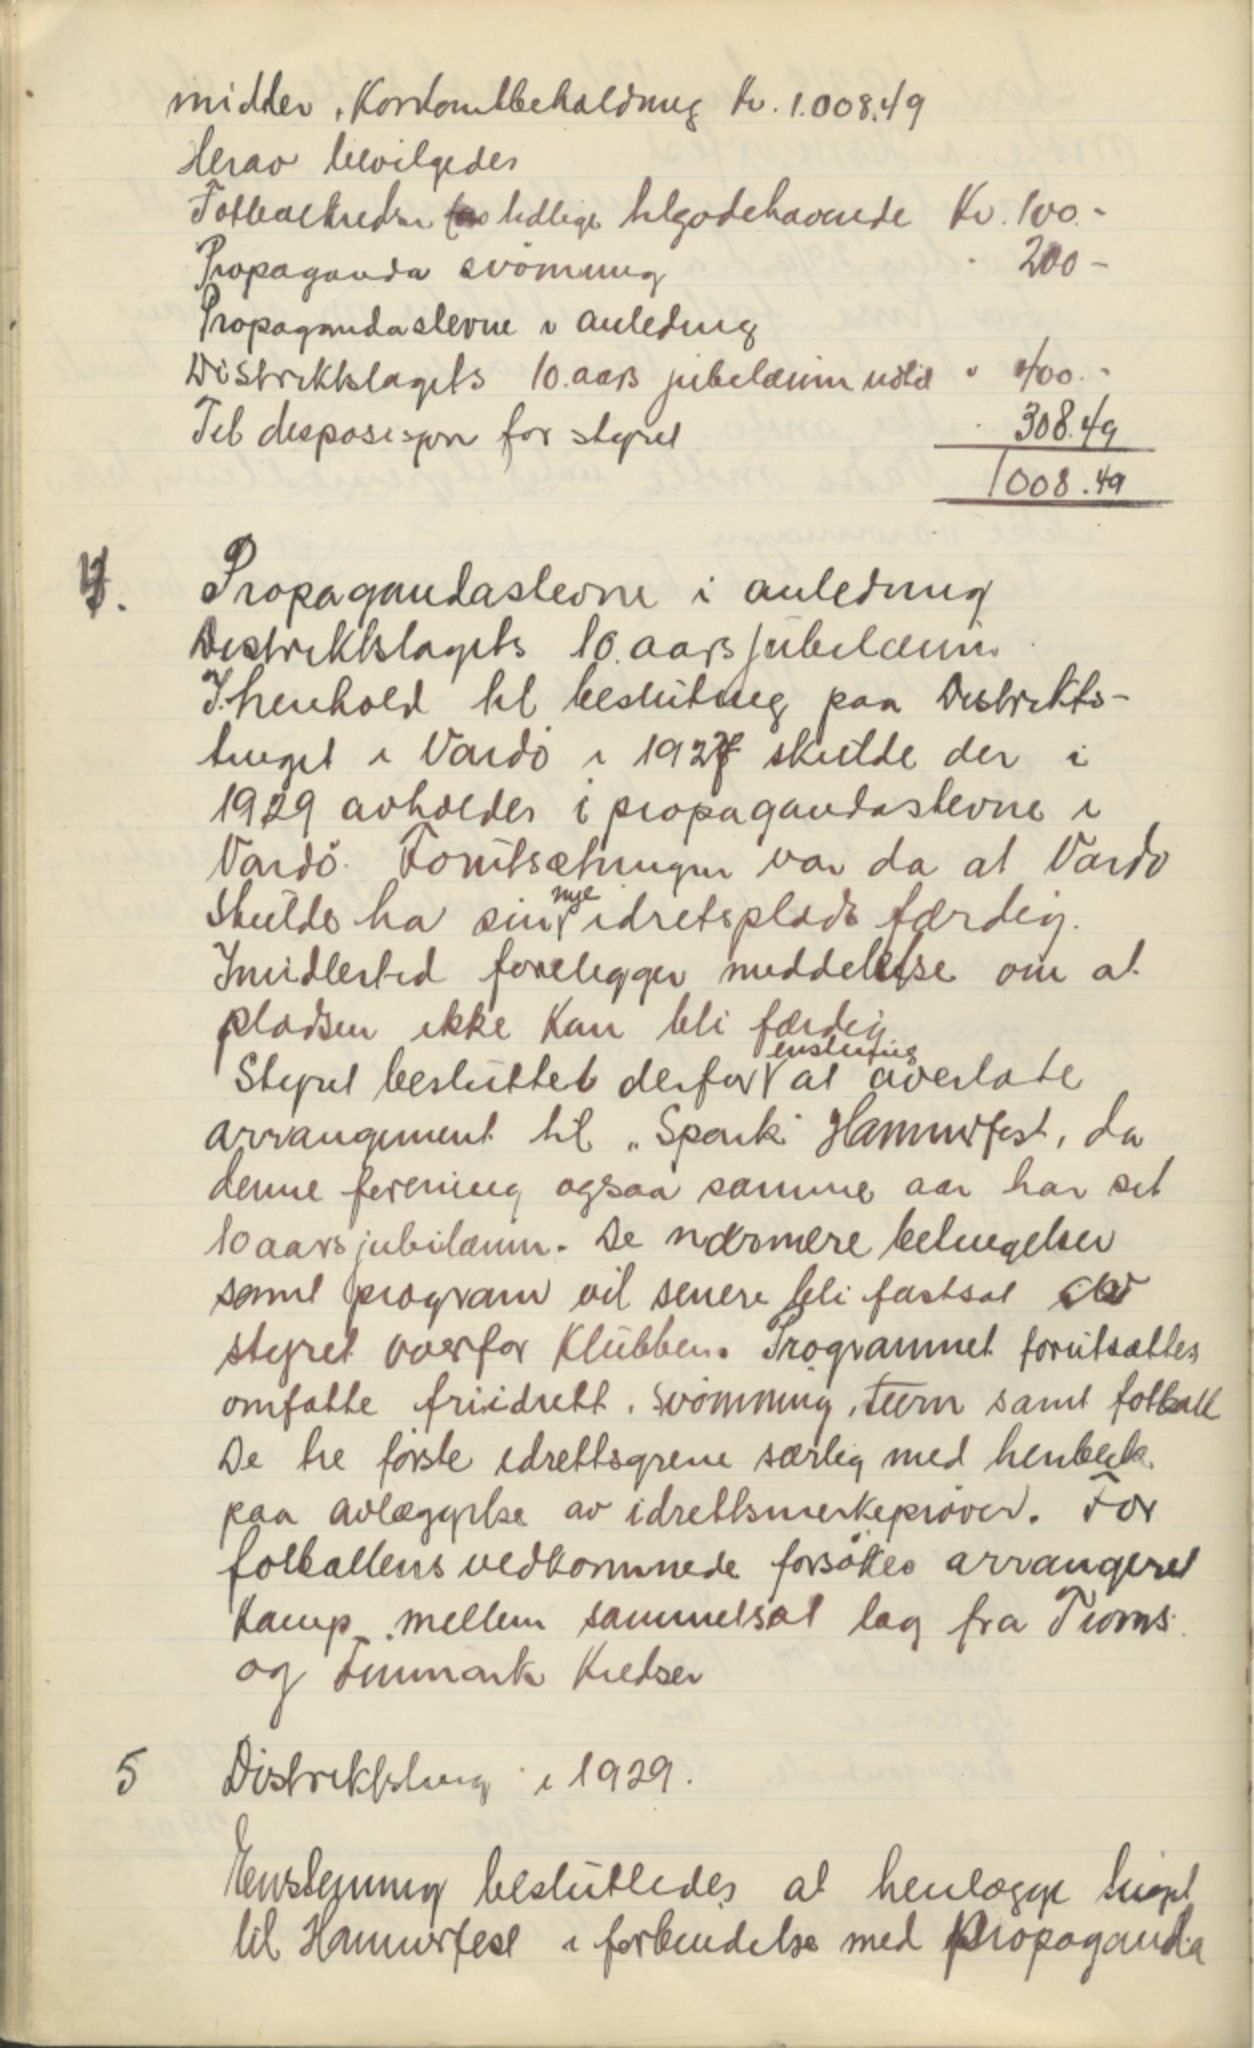 midder, Kontantbeholdning Kr. 1.008.49
Herav bevilgedes
Fotballkredsen tidligere tilgodehavende Kr. 100.-
Propaganda svømning " 200-
Propagandastevne i anledning
Distriktslagets 10.aars jubilæum " 400.-
Til disposisjon for styret " 308.49
1008.49
4. Propagandastevne i anledning
Distriktslagets 10.aars jubilæum.
I henhold til beslutning paa Distrikts-
tinget i Vardö i 1927 skulde der i
1929 avholdes i propagandastevne i
Vardö. Forutsætningen var da at Vardö
skulde ha sin nye idretsplads færdig.
Imidlertid foreligger meddelelse om at
pladsen ikke kan bli færdig
Styret besluttet derfor enstemig at overlate
arrangement til "Spark" Hammerfest, da
denne forening ogsaa samme aar har set
10 aars jubilæum. De nærmere betingelser
samt program vil senere bli fastsat av
styret overfor Klubben. Programmet forutsættes
omfatte friidrett, svömming, turn samt fotball
De tre förste idrettsgrene særlig med henblik
paa avlæggelse av idrettsmerkepröver. For
fotballens vedkommede forsökes arrangeret
Kamp mellem sammensat lag fra Troms
og Finmark Kredser
5 Distriktsting i 1929.
Enstemmig besluttedes at henlægge tinget
til Hammerfest i forbindelse med Propaganda